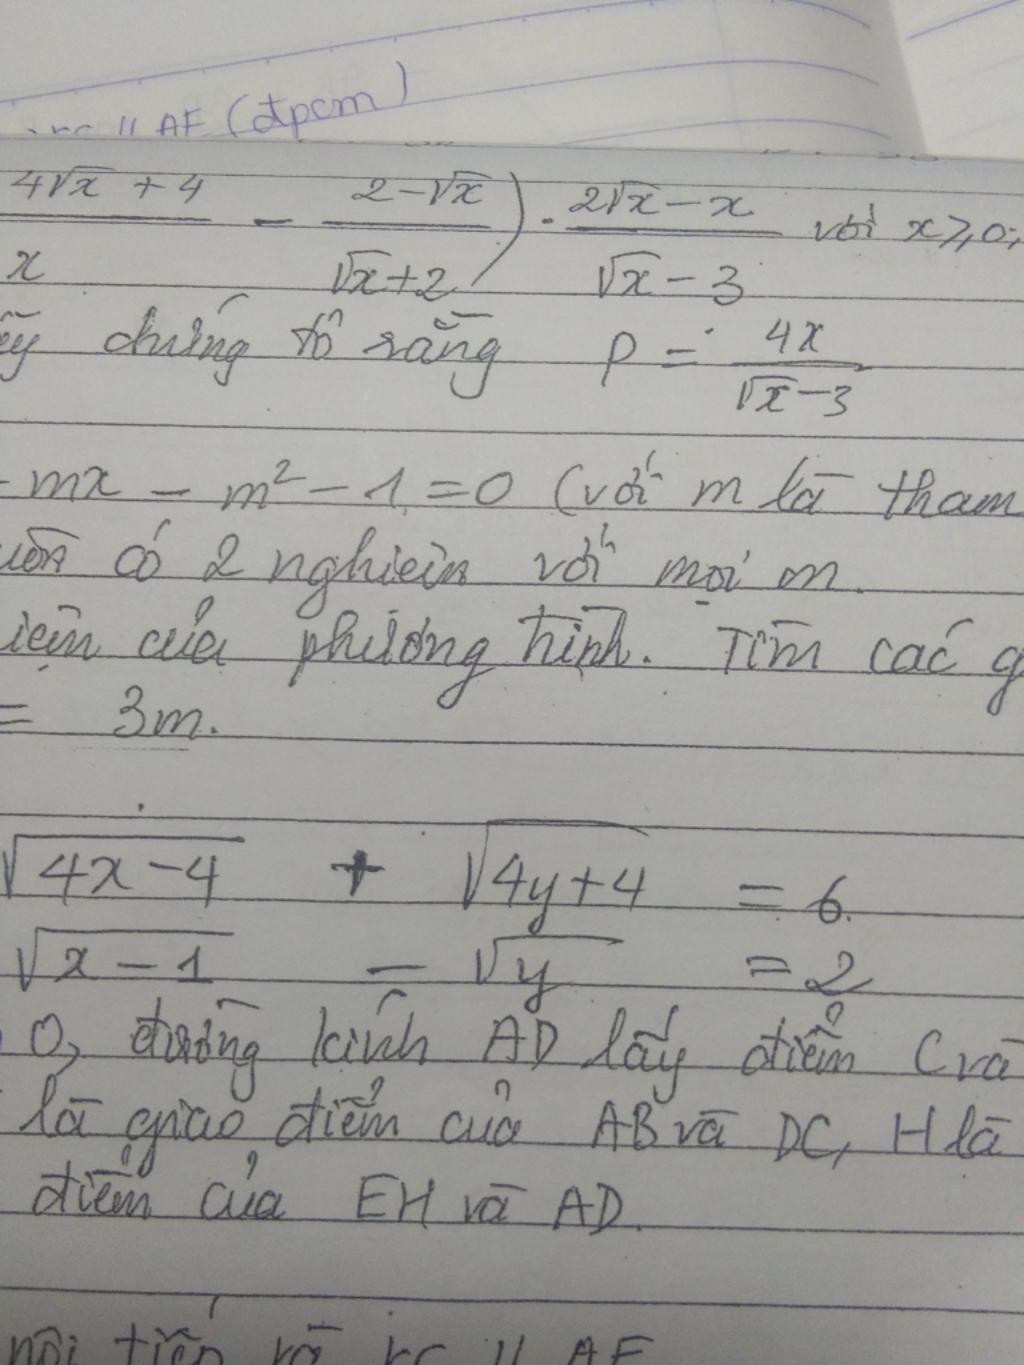 // AF (đpcm)
4√x + 4 / x - 2-√x / √x+2) . 2√x - x / √x - 3 với x ≥ 0;
chứng tỏ rằng P = 4x / √x-3
mx - m² - 1 = 0 (với m là tham
có 2 nghiệm với mọi m.
của phương trình. Tìm các g
= 3m.
√4x-4 + √4y+4 = 6.
√x-1 - √y = 2
O, đường kính AD lấy điểm C và
là giao điểm của AB và DC, H là
điểm của EH và AD.
nội tiếp và // AF